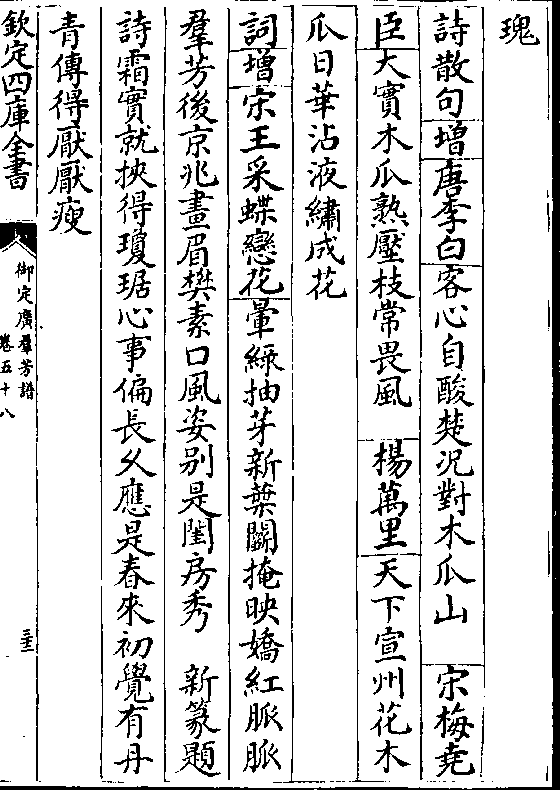 瑰
詩散句增唐李白客心自酸楚况對木瓜山　宋梅堯
臣大實木瓜熟壓枝常畏風　楊萬里天下宣州花木
瓜日華沾液繡成花
詞增宋王采蝶戀花暈綠抽芽新葉鬭掩映嬌紅脈脈
羣芳後京兆畫眉樊素口風姿别是閨房秀　新篆題
詩霜實就挾得瓊琚心事偏長久應是春來初覺有丹
青傳得厭厭瘦
欽定四庫全書
御定廣羣芳譜
卷五十八
三十三